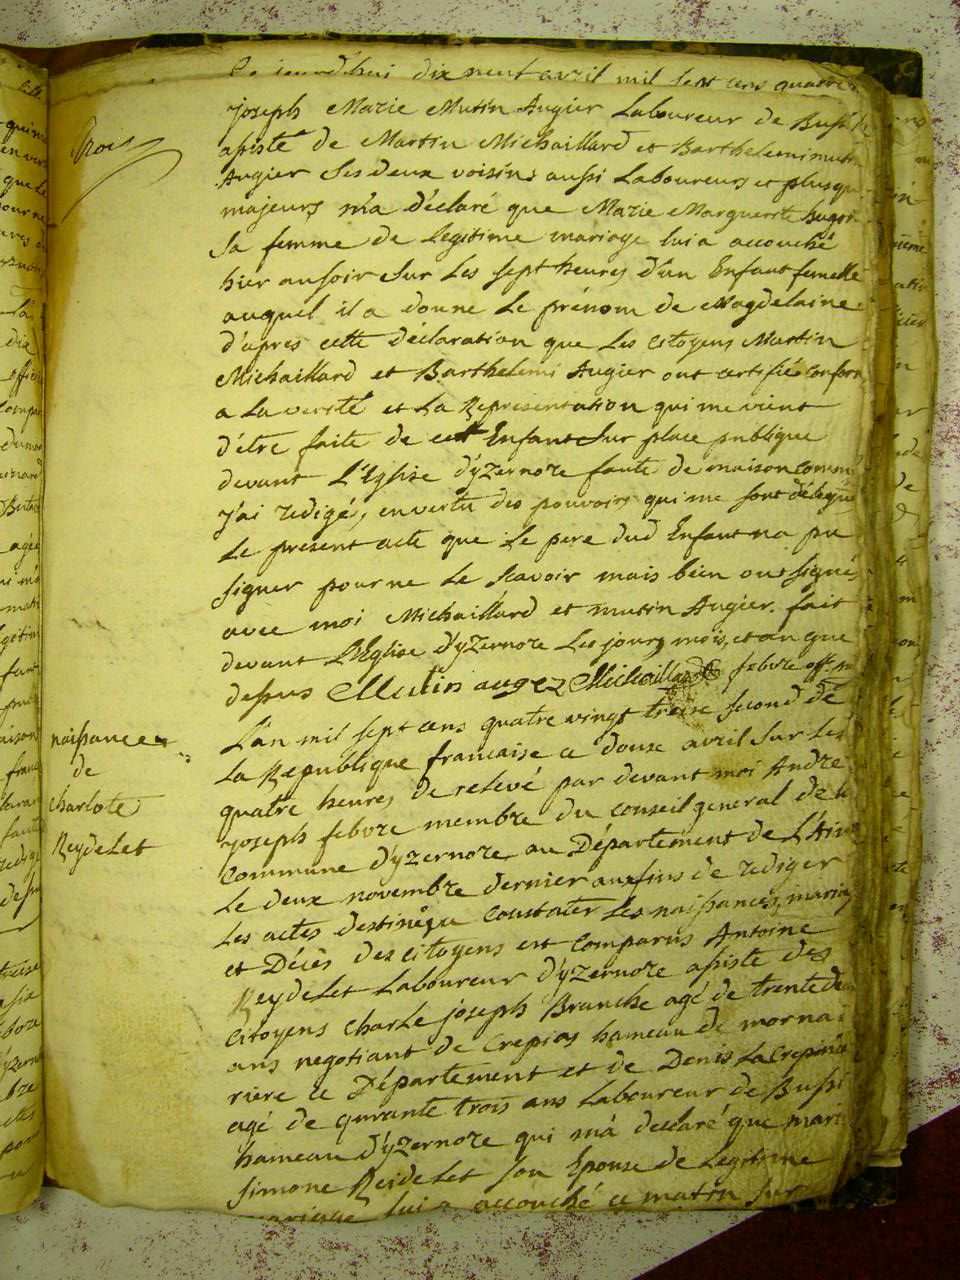 Ce jourd'hui dix neuf avril mil sept cens quatre
trois
joseph Marie Mutin Augier Laboureur de Bussi
assisté de Martin Michaillard et Barthelemi mutin
Augier Ses deux voisins aussi Laboureurs et plusque
majeurs m'a déclaré que Marie Marguerite hugon
Sa femme de Legitime mariage lui a accouché
hier au soir Sur Les sept heures d'un Enfant femelle
auquel il a donne Le prénom de Magdelaine
d'apres cette déclaration que Les citoyens Martin
Michaillard et Barthelemi Augier ont certifié conform
a La verité et La Représentation qui me vient
d'être faite de cet Enfant Sur place publique
devant L'Eglise d'yzernore faute de maison comm
j'ai redigé, en vertu des pouvoirs qui me sont délégué
Le present acte que Le pere dud Enfant na pu
signer pour ne Le Scavoir mais bien ont signés
avec moi Michaillard et mutin Augier. fait
devant L'Eglise d'yzernore Les jours mois, et an que
dessus Mutin augez Michaillard febvre off
naissance
de
charlote
Reydelet
L'an mil sept cens quatre vingt treise second de
La Republique francaise ce douse avril Sur Les
quatre heures de relevé par devant moi André
joseph febvre membre du conseil general de la
Commune d'yzernore au Département de L'Ain
Le deux novembre dernier aux fins de rediger
Les actes destinés a constater Les naissances, mariag
et Décès des citoyens est comparus Antoine
Reydelet Laboureur d'yzernore assisté des
Citoyens Charle joseph Branche agé de trente deux
ans negotiant de Crepias hameau de mornai
riere ce Département et de Denis La Crepine
agé de qurante trois ans Laboureur de Bussi
hameau d'yzernore qui m'a declaré que mari
Simone Reidelet son Epouse de Legitime
mariage lui a accouché ce matin Sur